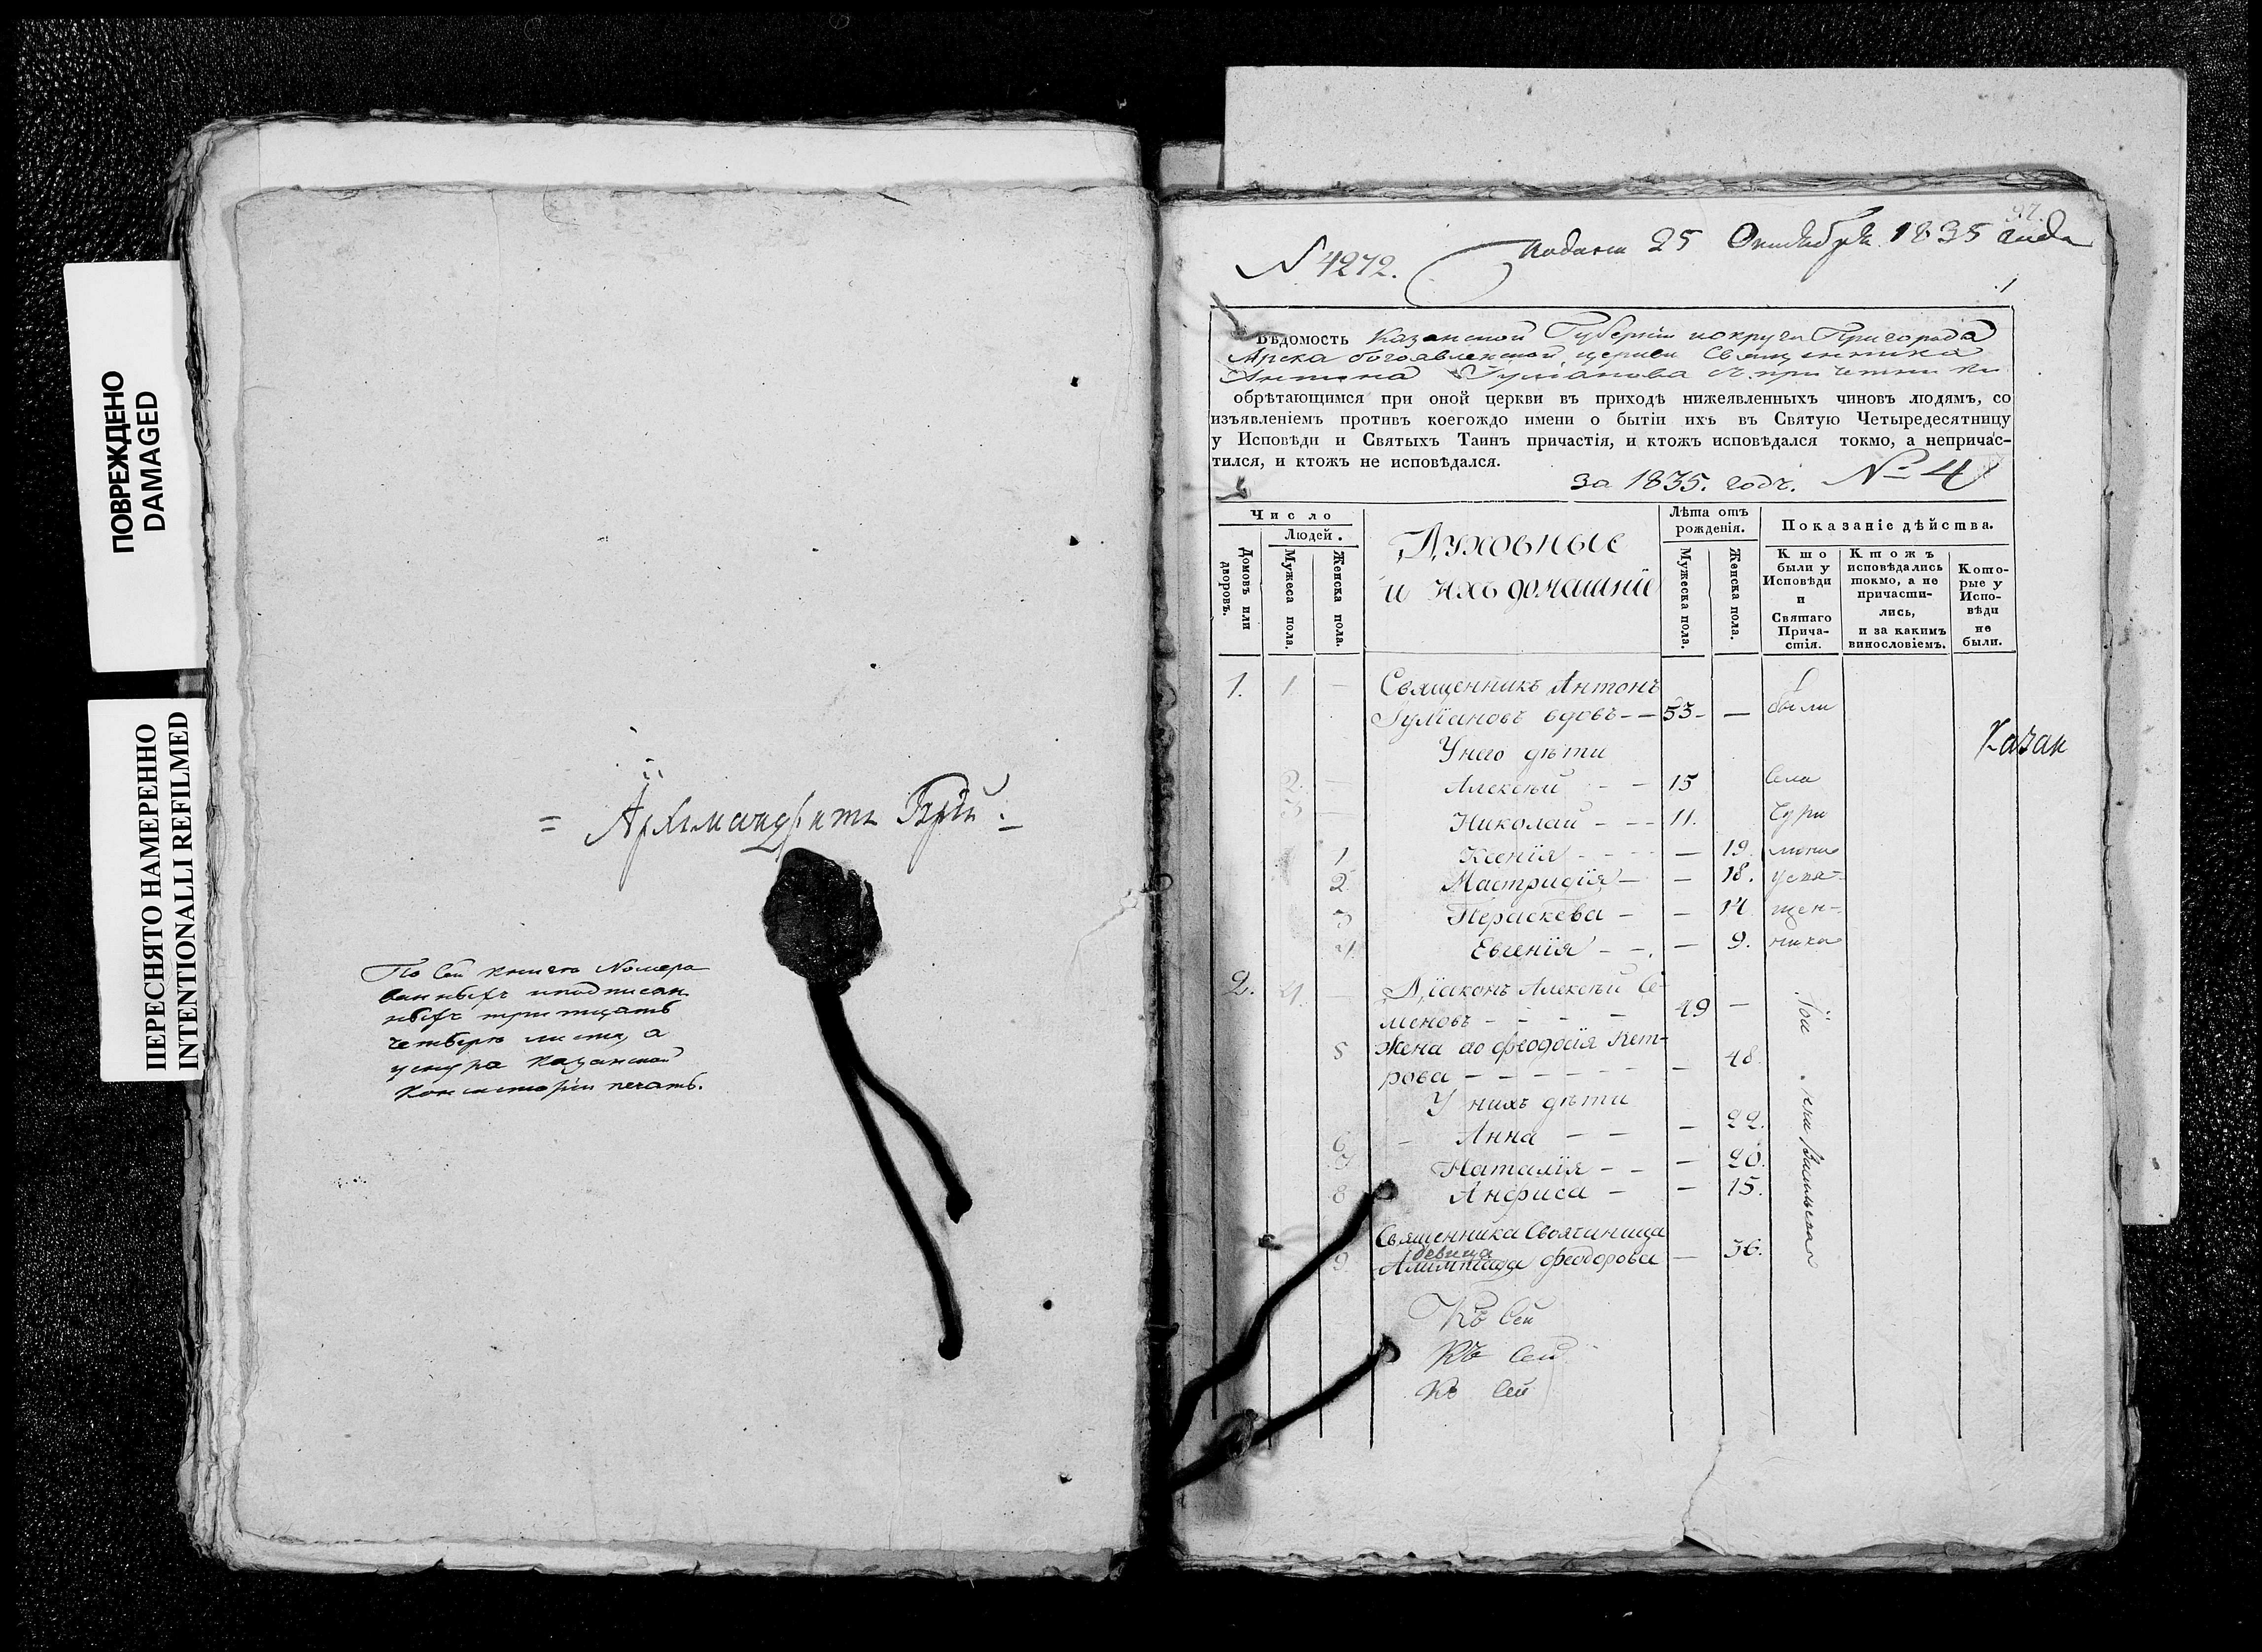 ПОВРЕЖДЕНО
DAMAGED
ПЕРЕСНЯТО НАМЕРЕННО
INTENTIONALLI REFILMED
= Архимандритъ Гурій. =
По сей книге Номеро
ванныхъ и подписан
ныхъ три тцать
четверо листа, а
у снура казанской
Консисторіи печать.
N 4272.
подана 25 Октября 1835 года
1
Вѣдомость Казанской Губерніи и округи Пригорода
Арска богоявленской церкви Священника
Антона Гуліанова съ причетники
обрѣтающимся при оной церкви въ приходѣ нижеявленныхъ чиновъ людямъ, со
изъявленіемъ противъ коегождо имени о бытіи ихъ въ Святую Четыредесятницу
у Исповѣди и Святыхъ Таинъ причастія, и ктожъ исповѣдался токмо, а непричас-
тился, и ктожъ не исповѣдался.
за 1835. годъ. № 4
Число
Домовъ или дворовъ.
Людей.
Мужеса пола.
Женска пола.
Духовные
и ихъ домашніе
Лѣта отъ рожденія.
Мужеска пола.
Женска пола.
Показаніе дѣйства.
Кто были у Исповѣди и Святаго Прича-стія.
Ктожъ исповѣдались токмо, а не причасти-лись, и за какимъ винословіемъ.
Кото-рые у Испо-вѣди не были.
1. 1 — Священникъ Антонъ
Гуліановъ вдовъ — — 53 — — были
Казан
У него дѣти
2. — Алексѣй — — 15 села
3 — Николай — — — 11. Чури
1 Ксенія — — — — 19.
2 Мастридія — — 18.
3 Пераскева — — 14 щен-
4. Евгенія — — — 9. ника
2. 4. — Діаконъ Алексѣй Се-
меновъ — — — — 49 —
5 Жена ево Феодосія Пет-
рова — — — — — — — 48.
У нихъ дѣти
6 — Анна — — — 22.
7 Наталія — — — 20.
8 Анфиса — — 15.
Священника Своячиница
девица
9. Алимпіада Феодорова — 36.
Къ Сей
Къ Сей
Къ Сей